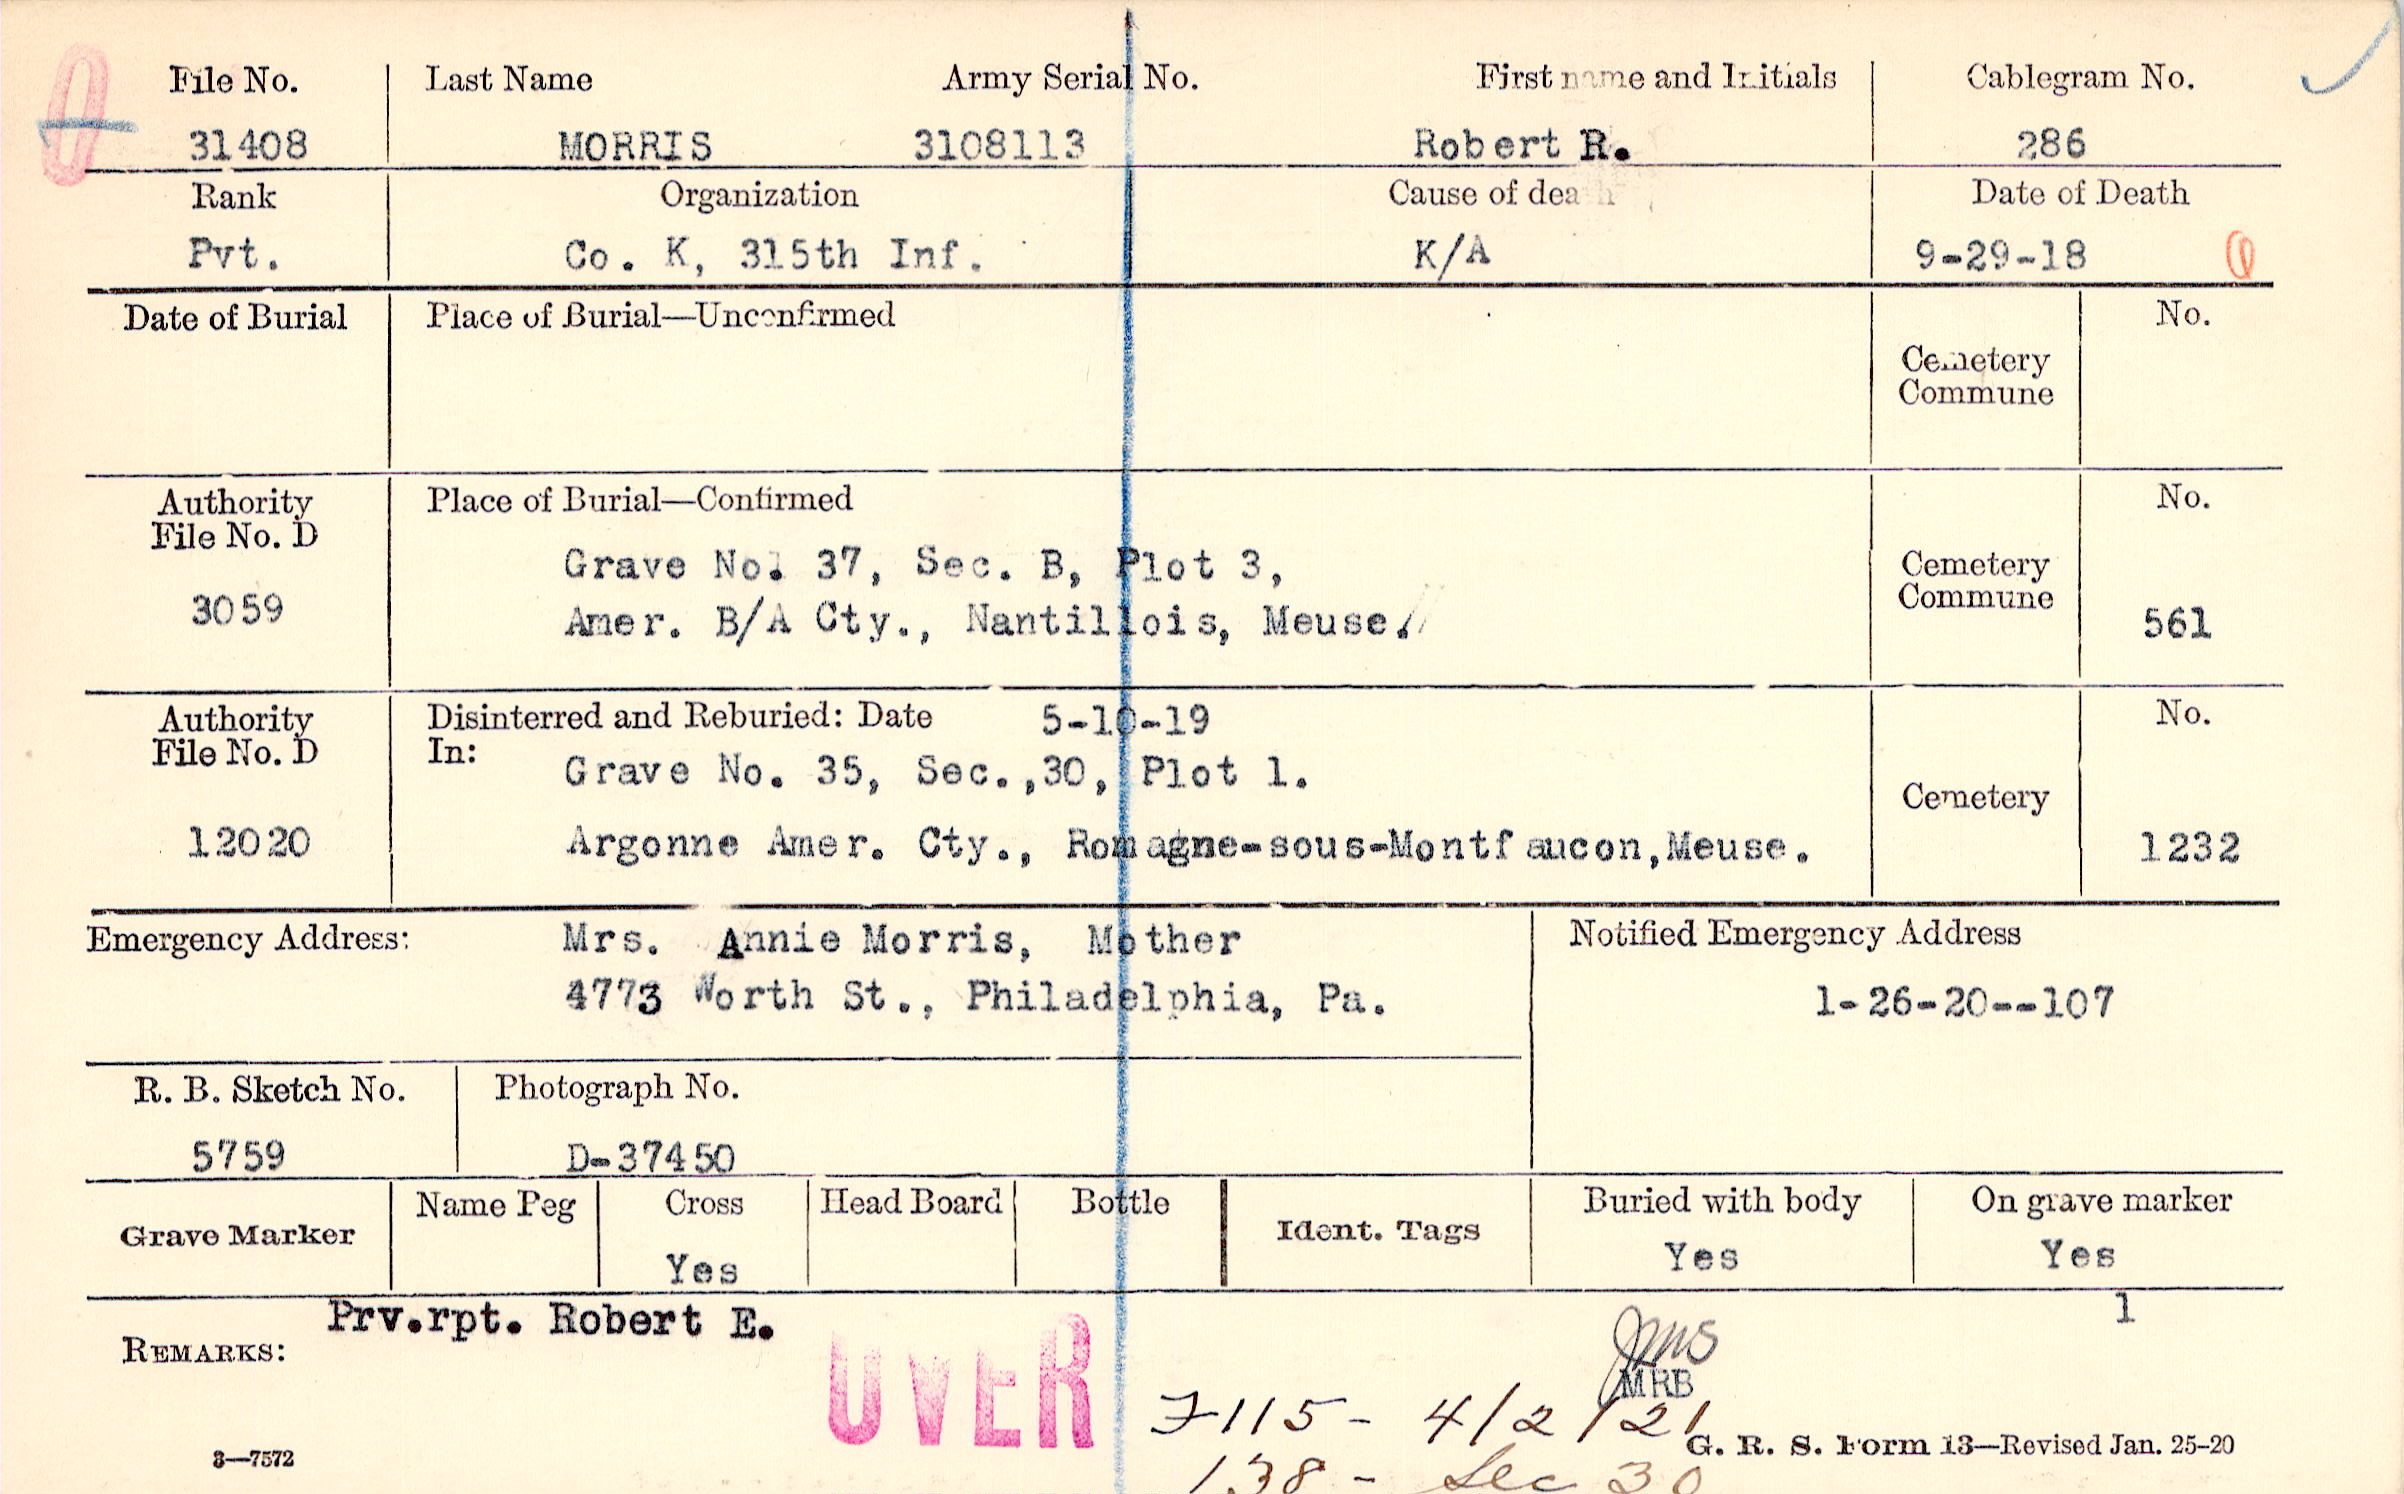 File No. Last Name Army Serial No. First name and Initials Cablegram No.
31408 MORRIS 3108113 Robert R. 286
Rank Organization Cause of death Date of Death
Pvt. Co. K, 315th Inf. K/A 9-29-18
Date of Burial Place of Burial—Unconfirmed No.
Cemetery
Commune
Authority Place of Burial—Confirmed No.
File No. D
Grave No. 37, Sec. B, Plot 3, Cemetery
3059 Amer. B/A Cty., Nantillois, Meuse. Commune 561
Authority Disinterred and Reburied: Date 5-10-19 No.
File No. D In:
Grave No. 35, Sec.,30, Plot 1.
Cemetery
12020 Argonne Amer. Cty., Romagne-sous-Montfaucon,Meuse. 1232
Emergency Address: Mrs. Annie Morris, Mother Notified Emergency Address
4773 Worth St., Philadelphia, Pa. 1-26-20--107
R. B. Sketch No. Photograph No.
5759 D-37450
Grave Marker Name Peg Cross Head Board Bottle Ident. Tags Buried with body On grave marker
Yes Yes Yes
1
Prv.rpt. Robert E.
REMARKS:
OVER
MRB
F115- 4/2/21
3—7572 G. R. S. Form 13—Revised Jan. 25-20
138 - Sec 30